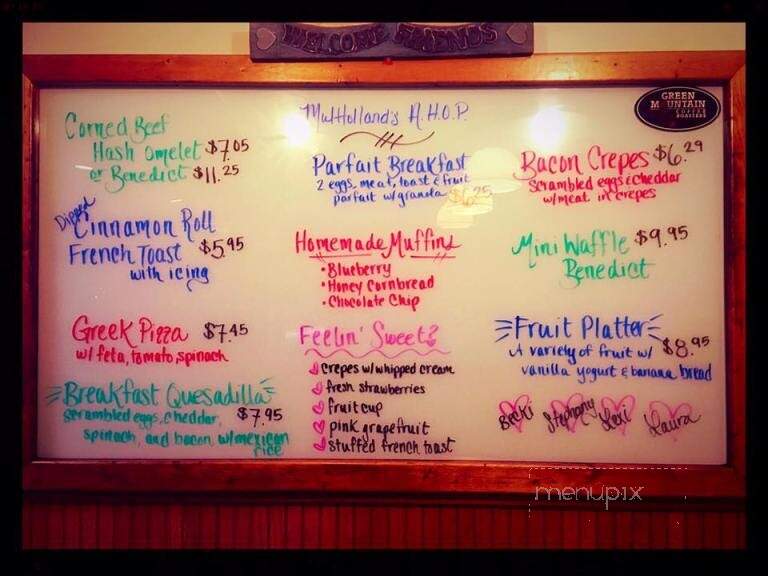 WELCOME FRIENDS
GREEN
MOUNTAIN
COFFEE
ROASTERS
Mulholland's A.H.O.P.
Corned Beef
Hash omelet $7.05
or Benedict $11.25
Dipped
Cinnamon Roll
French Toast $5.95
with icing
Greek Pizza $7.45
w/ feta, tomato, spinach
Breakfast Quesadilla
scrambled eggs, cheddar, $7.95
spinach, and bacon, w/mexican
rice
Parfait Breakfast
2 eggs, meat, toast & fruit
parfait w/granola $6.25
Homemade Muffins
• Blueberry
• Honey Cornbread
• Chocolate Chip
Feelin' Sweet?
crepes w/whipped cream
fresh strawberries
fruit cup
pink grapefruit
stuffed french toast
Bacon Crepes $6.29
scrambled eggs & cheddar
w/meat in crepes
Mini Waffle $9.95
Benedict
Fruit Platter
A variety of fruit w/ $8.95
vanilla yogurt & banana bread
Becki Stephany Lexi Laura
menupix